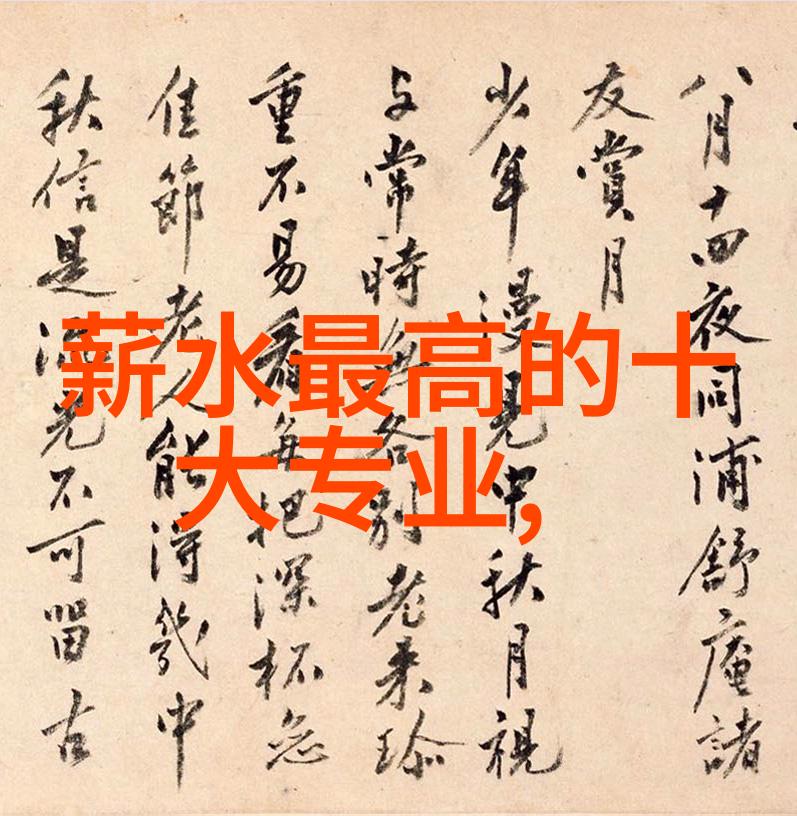 薪水最高的十
大专业,
八月十四夜同浦舒庵諸
友賞月
少年漫見中秋月視
与常時無各別老来珎
重不易看每把深杯
佳節老人能得幾中
秋信是流光不可留古